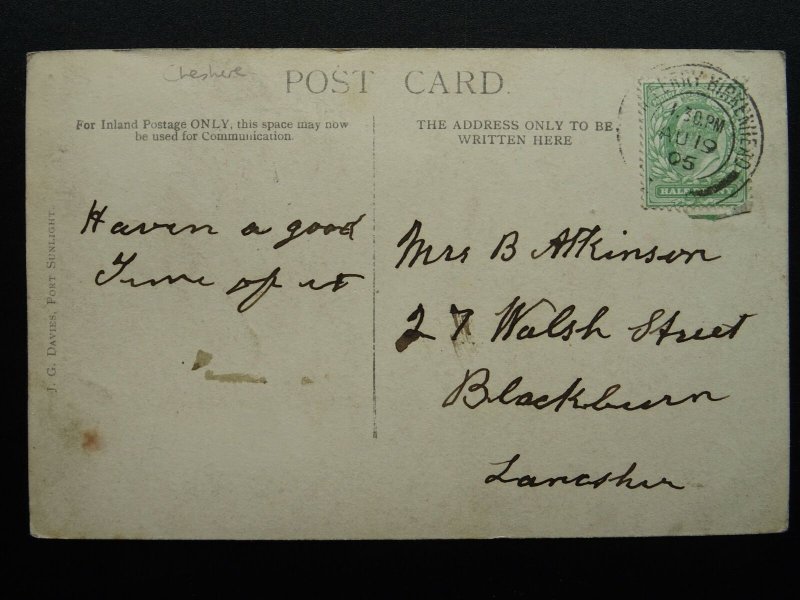 Cheshere
POST CARD.
For Inland Postage ONLY, this space may now
be used for Communication.
THE ADDRESS ONLY TO BE
WRITTEN HERE
FERRY BIRKENHEAD
1 30 PM
AU 19
05
HALFPENNY
J. G. DAVIES, PORT SUNLIGHT.
Haven a good
Time of it
Mrs B Atkinson
27 Walsh Street
Blackburn
Lancshir